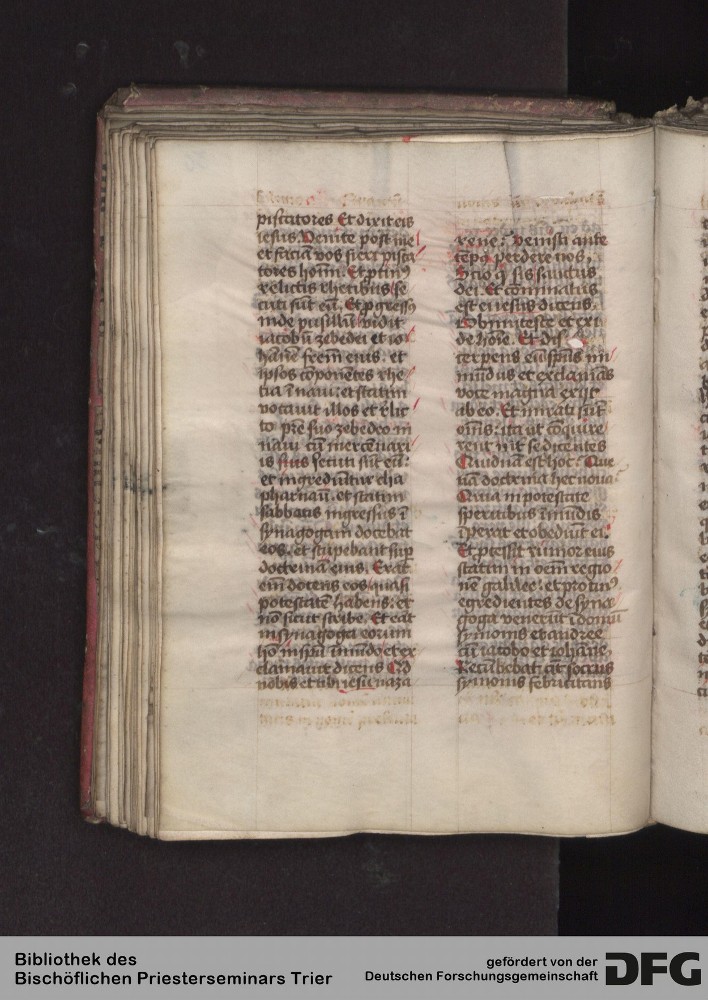 piscatores Et dixit eis
iesus. Venite post me
et faciā vos fieri pisca
tores hoīm. Et ꝓtinꝰ
relictis rhetibus se
cuti sūt eū. Et ꝓgressꝰ
inde pusillū vidit
iacobū zebedei et io
hānē frēm eius. et
ipsos cōponētes rhe
tia ī naui. et statim
vocauit illos et rͨlic
to prē suo zebedeo in
naui cū mercēnari
is suis secuti sūt eū.
et ingrediūtur cha
pharnaū. et statim
sabbatis ingressus ī
synagogam docebat
eos. et stupebant suꝑ
doctrina eius. Erat
eīn docens eos quasi
potestatē habens. et
nō sicut scribe. Et erat
in synagoga eorum
hō in spū īmūdo et ex
clamauit dicens Qͥd
nobis et tibi iesu naza
rene. venisti ante
tēpꝰ perdere nos.
Scio qͥ sis sanctus
dei. Et cōminatus
est ei iesus dicens.
Obmutesce et exi
de hoīe. Et dis
cerpens eū spūs im
mūdus et exclamās
voce magna exiit
ab eo. Et mirati sūt
om̄s. ita ut cōquire
rent int̄ se dicentes
Quidnā est hoc. Que
nā doctrina hec noua
Quia in potestate
spiritibus īmūdis
īperat et obediūt ei.
Et ꝓcessit rumor eius
statim in oēm regio
nē galilee. et protinꝰ
egredientes de syna
goga venerūt ī domū
symonis et andree
cū iacobo et iohāne.
Recūbebat aūt socrus
symonis febricitans
Bibliothek des
Bischöflichen Priesterseminars Trier
gefördert von der
Deutschen Forschungsgemeinschaft
DFG